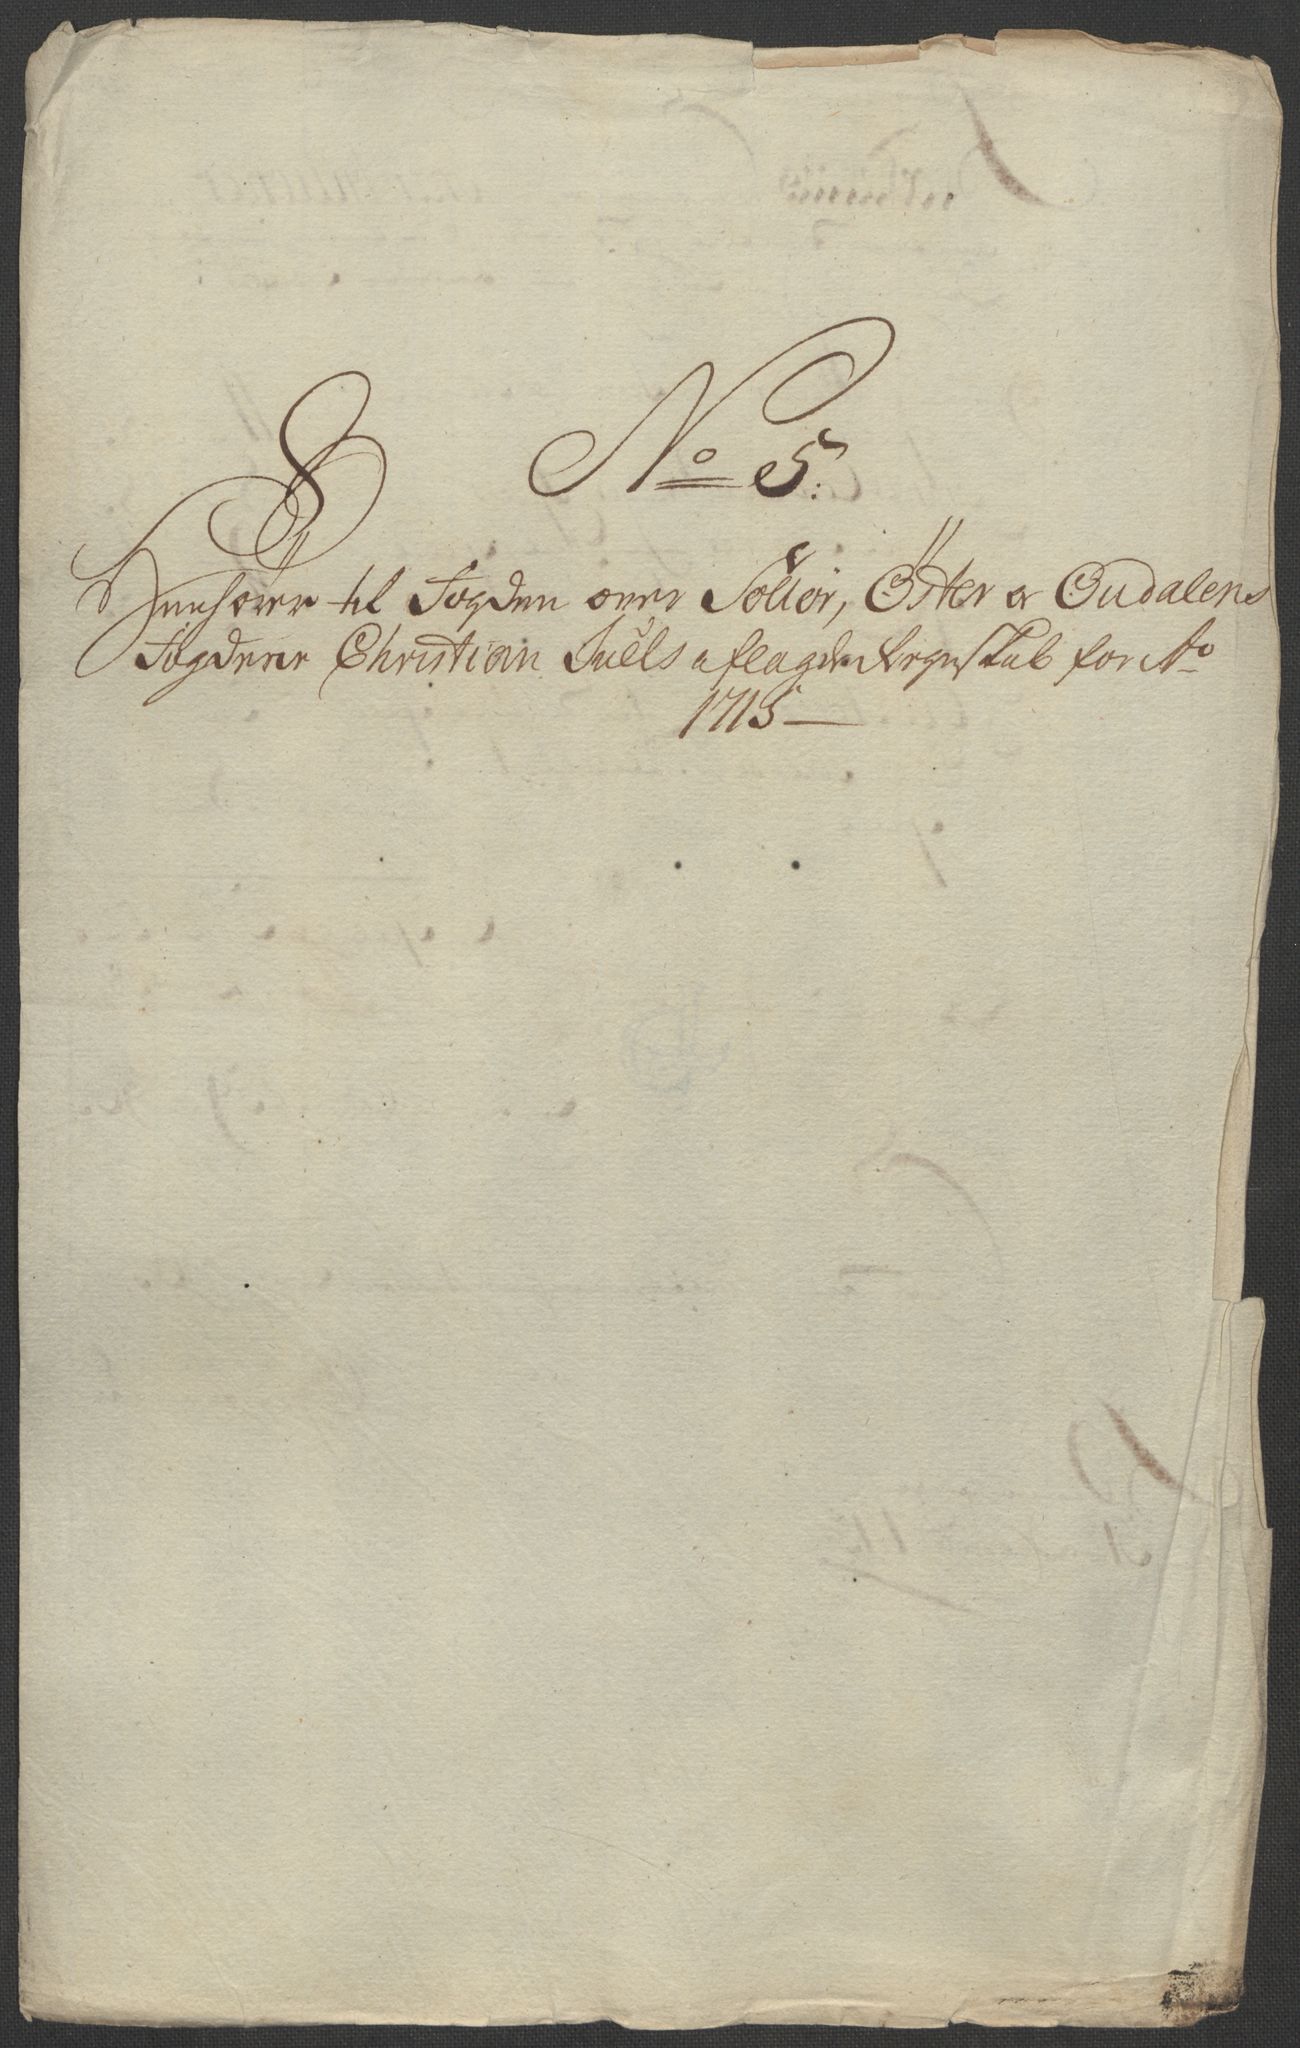 No 5.
Henhører til Fogden over Sollør, Øster og Oudalens
Fogderie Christian Juels aflagde Regnskab for Ao
1715